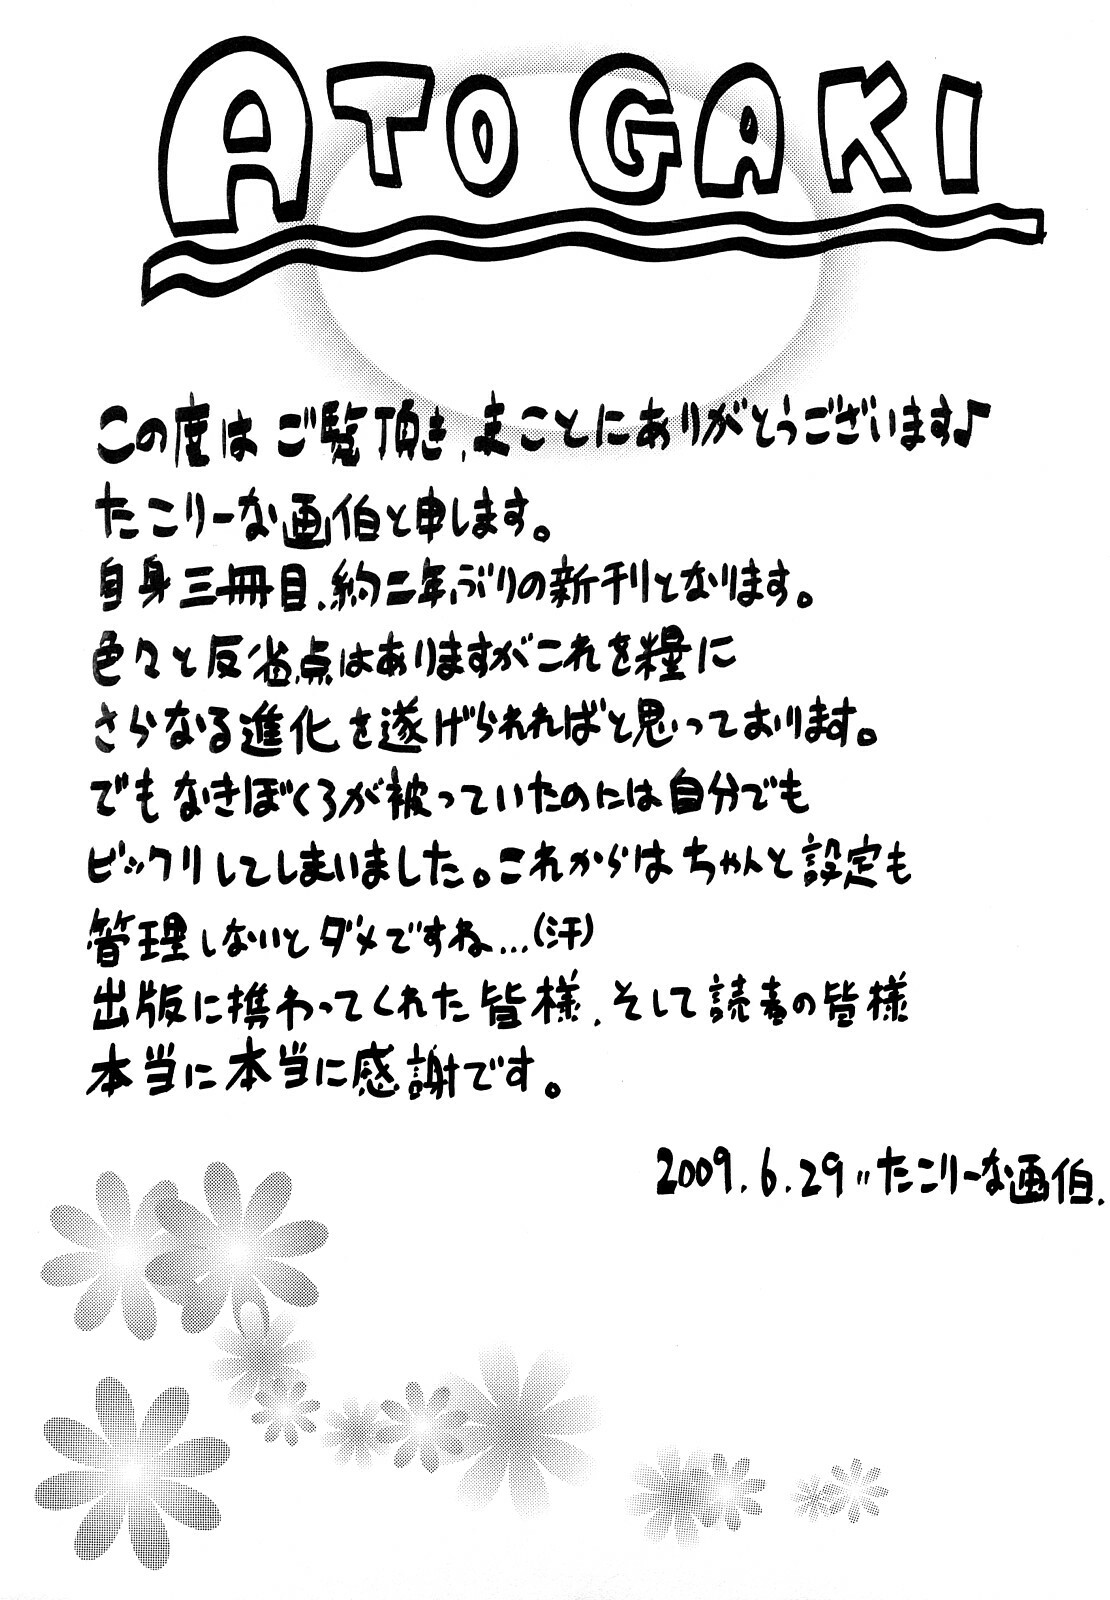 ATOGAKI
この度は ご覧頂き、まことにありがとうございます♪
たこりーな画伯と申します。
自身三冊目、約二年ぶりの新刊となります。
色々と反省点はありますがこれを糧に
さらなる進化を遂げられればと思っております。
でも なきぼくろが被っていたのには自分でも
ビックリしてしまいました。これからは ちゃんと設定も
管理しないとダメですね…(汗)
出版に携わってくれた皆様、そして読者の皆様
本当に本当に感謝です。
2009.6.29〃たこりーな画伯、